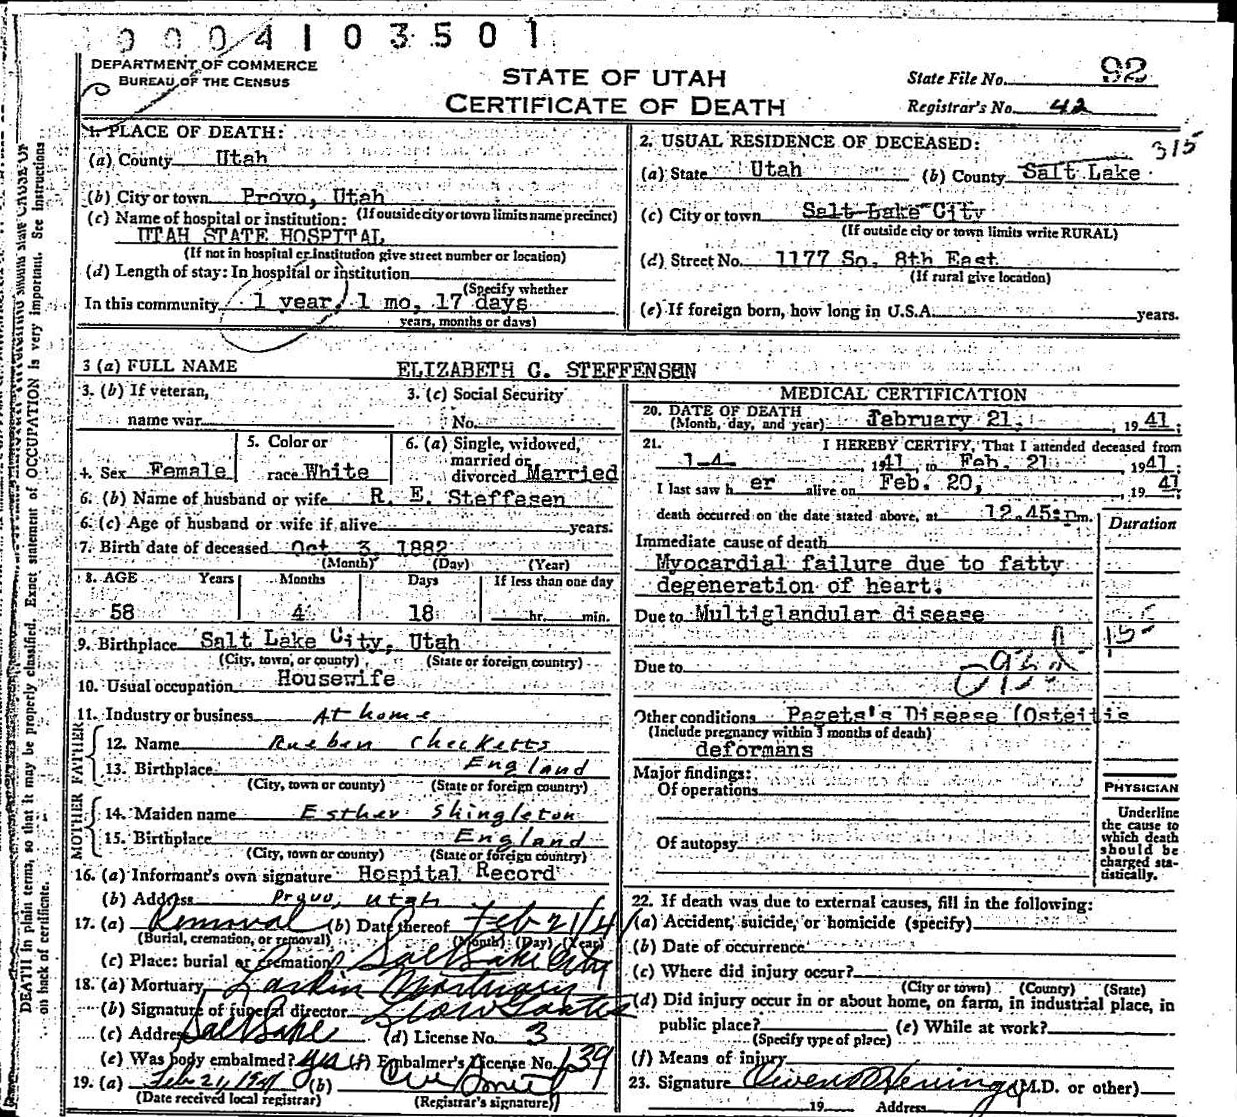 0004103501
DEPARTMENT OF COMMERCE
BUREAU OF THE CENSUS
STATE OF UTAH
CERTIFICATE OF DEATH
State File No. 92
Registrar's No. 42
1. PLACE OF DEATH:
(a) County Utah
(b) City or town Provo, Utah
(c) Name of hospital or institution: (If outside city or town limits name precinct)
UTAH STATE HOSPITAL
(If not in hospital or institution give street number or location)
(d) Length of stay: In hospital or institution
(Specify whether
In this community 1 year, 1 mo, 17 days
years, months or days)
2. USUAL RESIDENCE OF DECEASED: 315
(a) State Utah (b) County Salt Lake
(c) City or town Salt Lake City
(If outside city or town limits write RURAL)
(d) Street No. 1177 So. 8th East
(If rural give location)
(e) If foreign born, how long in U.S.A. years.
3 (a) FULL NAME ELIZABETH C. STEFFENSEN
3. (b) If veteran,
name war
3. (c) Social Security
No.
4. Sex Female
5. Color or
race White
6. (a) Single, widowed,
married or
divorced Married
6. (b) Name of husband or wife R. E. Steffesen
6. (c) Age of husband or wife if alive years.
7. Birth date of deceased Oct. 3, 1882
(Month) (Day) (Year)
8. AGE Years Months Days If less than one day
58 4 18 hr. min.
9. Birthplace Salt Lake City, Utah
(City, town, or county) (State or foreign country)
10. Usual occupation Housewife
11. Industry or business At home
FATHER
12. Name Rueben Checketts
13. Birthplace England
(City, town or county) (State or foreign country)
MOTHER
14. Maiden name Esther Shingleton
15. Birthplace England
(City, town or county) (State or foreign country)
16. (a) Informant's own signature Hospital Record
(b) Address Provo, Utah
17. (a) Removal (b) Date thereof Feb 21/41
(Burial, cremation, or removal) (Month) (Day) (Year)
(c) Place: burial or cremation Salt Lake City
18. (a) Mortuary Larkin Mortuary
(b) Signature of funeral director
(c) Address Salt Lake (d) License No. 3
(e) Was body embalmed? yes (f) Embalmer's License No. 139
19. (a) Feb 21 1941 (b)
(Date received local registrar) (Registrar's signature)
MEDICAL CERTIFICATION
20. DATE OF DEATH February 21, , 1941;
(Month, day, and year)
21. I HEREBY CERTIFY, That I attended deceased from
1-4 , 1941, to Feb. 21 , 1941;
I last saw her alive on Feb. 20, , 1941;
death occurred on the date stated above, at 12.45: m.
Duration
Immediate cause of death
Myocardial failure due to fatty
degeneration of heart.
Due to Multiglandular disease
15
Due to
Other conditions Pagets's Disease (Osteitis
(Include pregnancy within 3 months of death)
deformans
Major findings:
Of operations
Of autopsy
PHYSICIAN
Underline
the cause to
which death
should be
charged sta-
tistically.
22. If death was due to external causes, fill in the following:
(a) Accident, suicide, or homicide (specify)
(b) Date of occurrence
(c) Where did injury occur?
(City or town) (County) (State)
(d) Did injury occur in or about home, on farm, in industrial place, in
public place? (e) While at work?
(Specify type of place)
(f) Means of injury
23. Signature Owen (M.D. or other)
19 Address
DEATH in plain terms, so that it may be properly classified. Exact statement of OCCUPATION is very important. See instructions
on back of certificate.